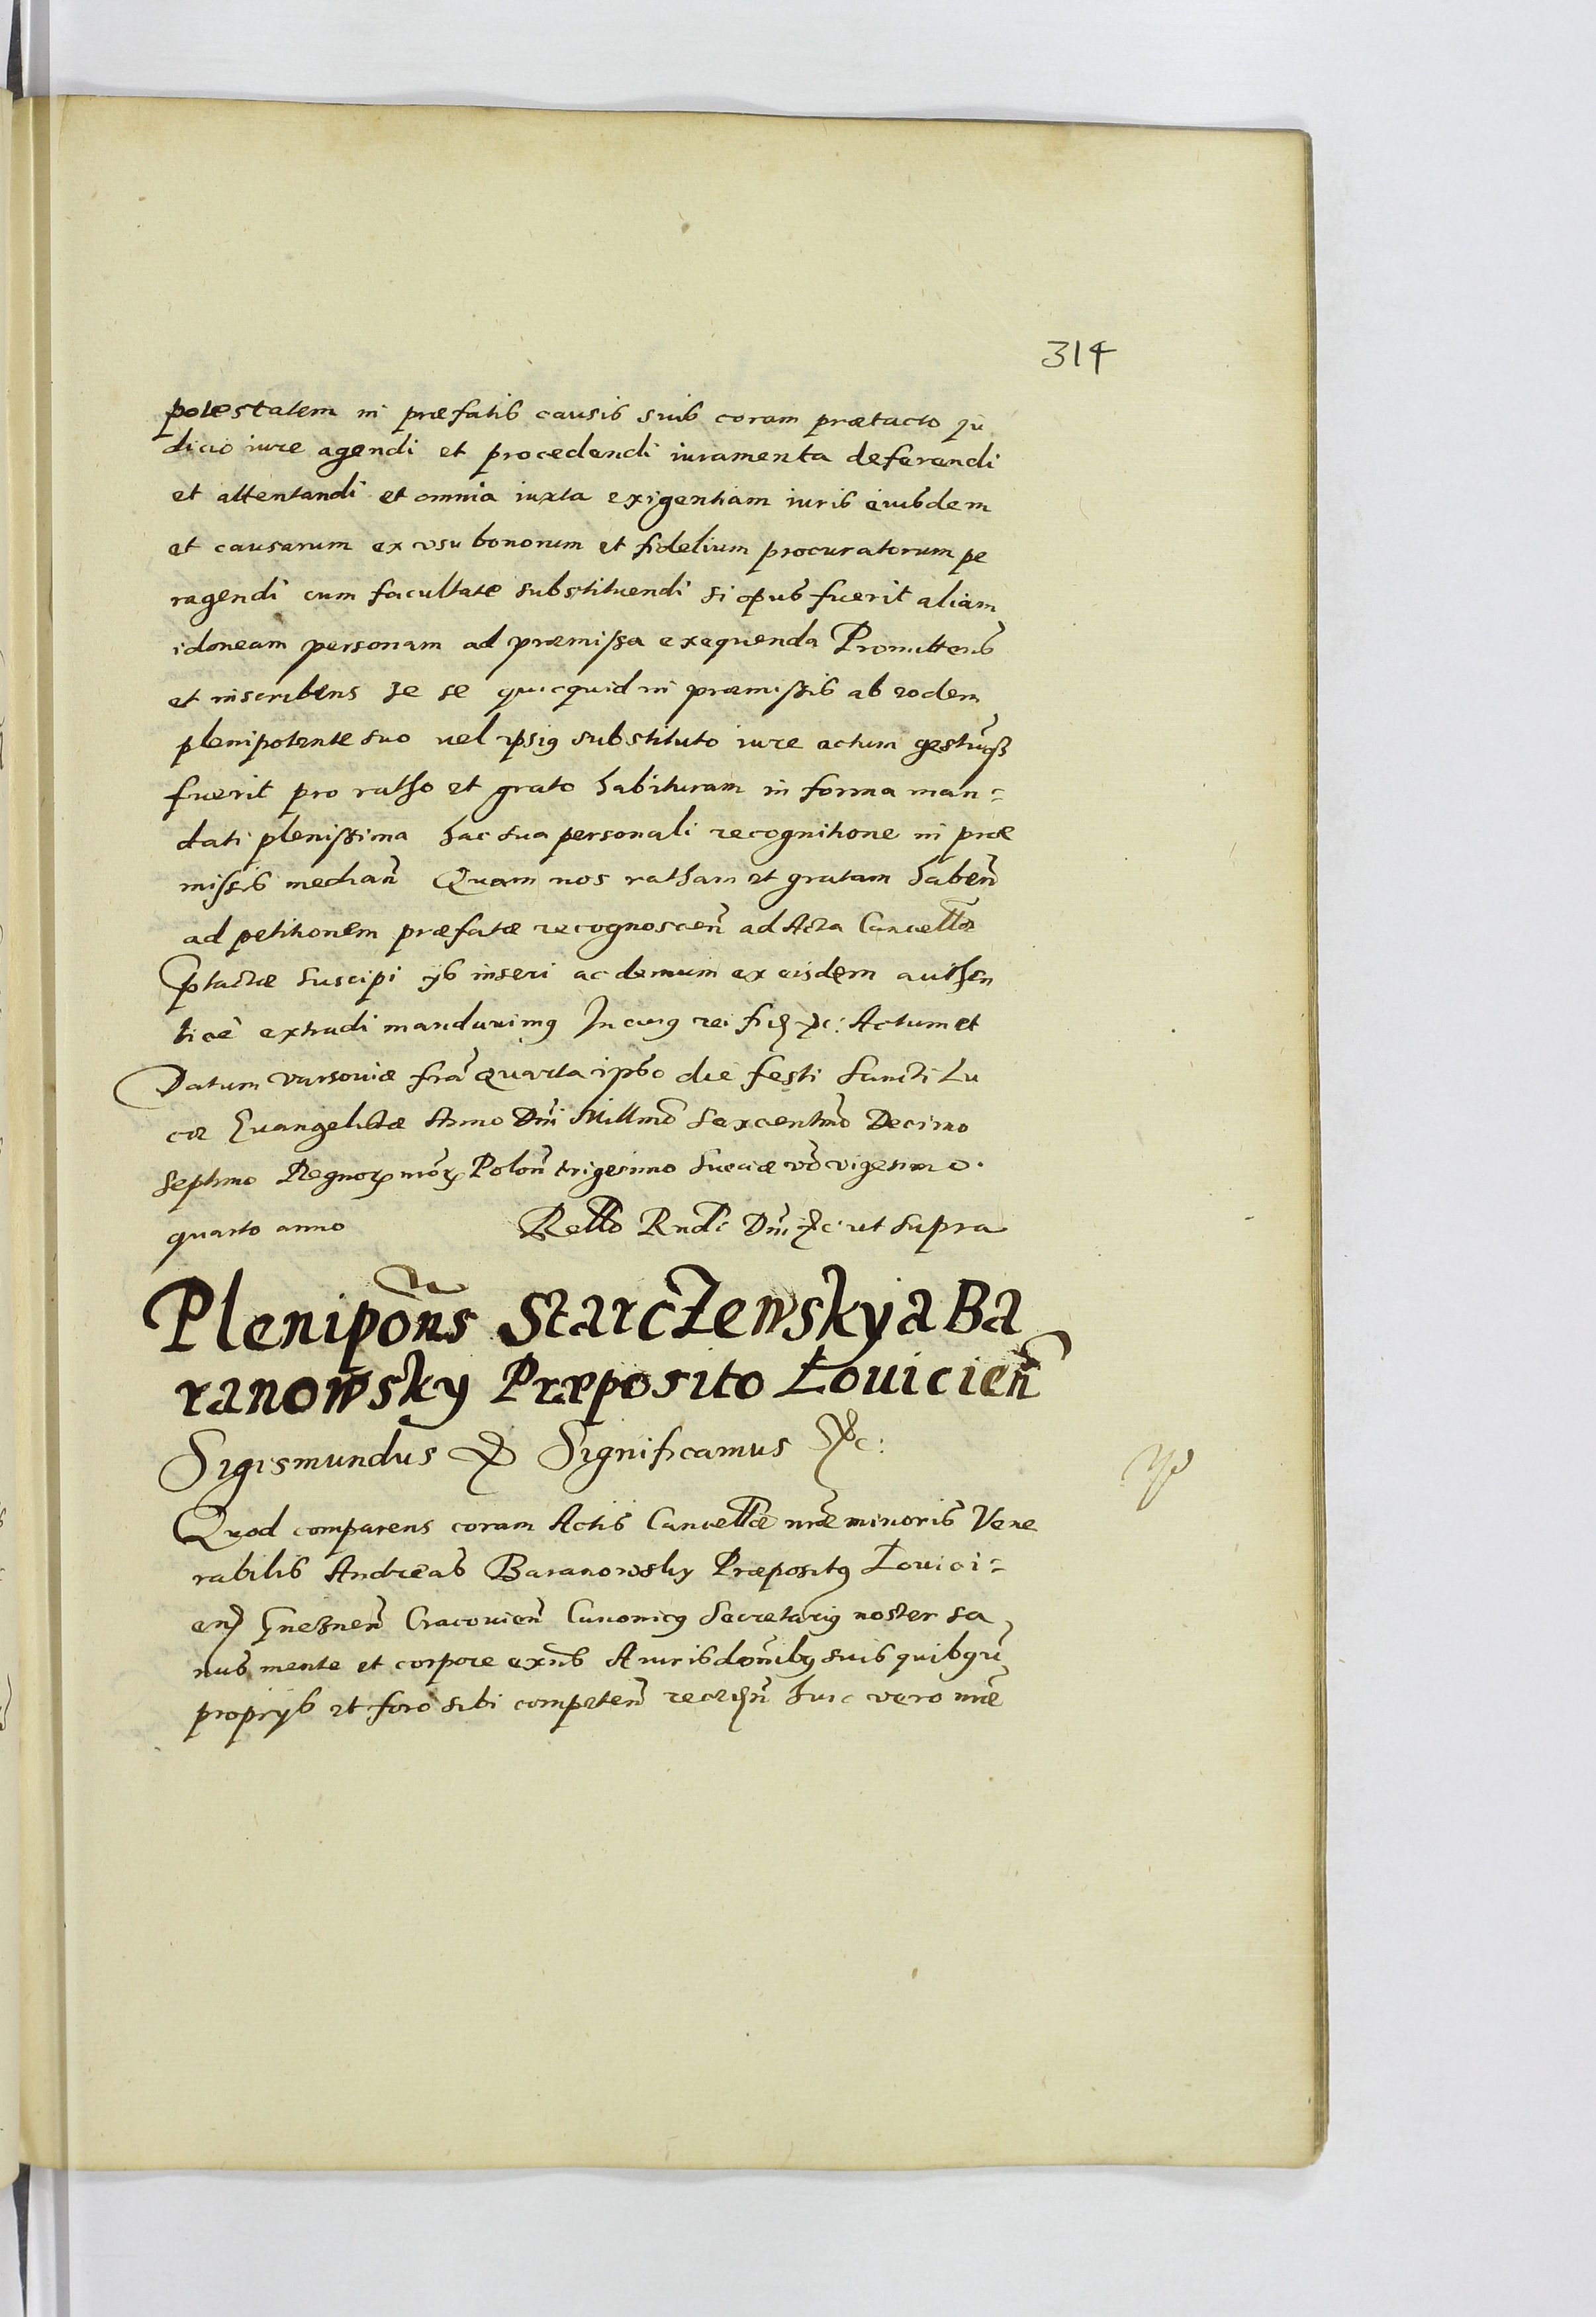 314
potestatem in præfatis causis suis coram prætacto Ju
dicio iure agendi et procedendi iuramenta deferendi
et attentandi et omnia iuxta exigentiam iuris eiusdem
et causarum ex usu bonorum et fidelium procuratorum pe
ragendi cum facultate substituendi si opus fuerit aliam
idoneam personam ad præmissa exequenda Promittens
et inscribens se se quicquid in præmissis ab eodem
plenipotente suo uel ipsius substituto iure actum gestumq3
fuerit pro ratho et grato habituram in forma man=
dati plenissima hac sua personali recognitione in præ
missis median̄ Quam nos ratham et gratam haben̄
ad petitionem præfatæ recognoscen̄ ad Acta Cancellæ
ptactæ suscipi ijs inseri ac demum ex eisdem authen
ticè extradi mandauimus In cuius rei fid &c: Actum et
Datum Varsoviæ fr̄a quarta ipso die festi Sancti Lu
cæ Euangelistæ Anno Dn̄i Millm̄o Sexcentm̄o Decimo
Septimo Regnor. nr̄or. Polon̄ trigesimo Sueciæ vō vigesimo.
quarto anno Rell̄o Rndi Dn̄i &c: ut supra
Plenipōns StarcZewsky a Ba
ranowsky Præposito Łouicien̄
Sigismundus & Significamus &c:
Quod comparens coram Actis Cancellæ nr̄æ minoris Vene
rabilis Andreas Baranowsky Præpositus Łouici=
en Gneznen̄ Cracouien̄ Canonicus Secretarius noster sa
nus mente et corpore exn̄s A iurisdon̄ibus suis quibusuis
proprijs et foro sibi competen̄ receden̄ huic vero nr̄æ